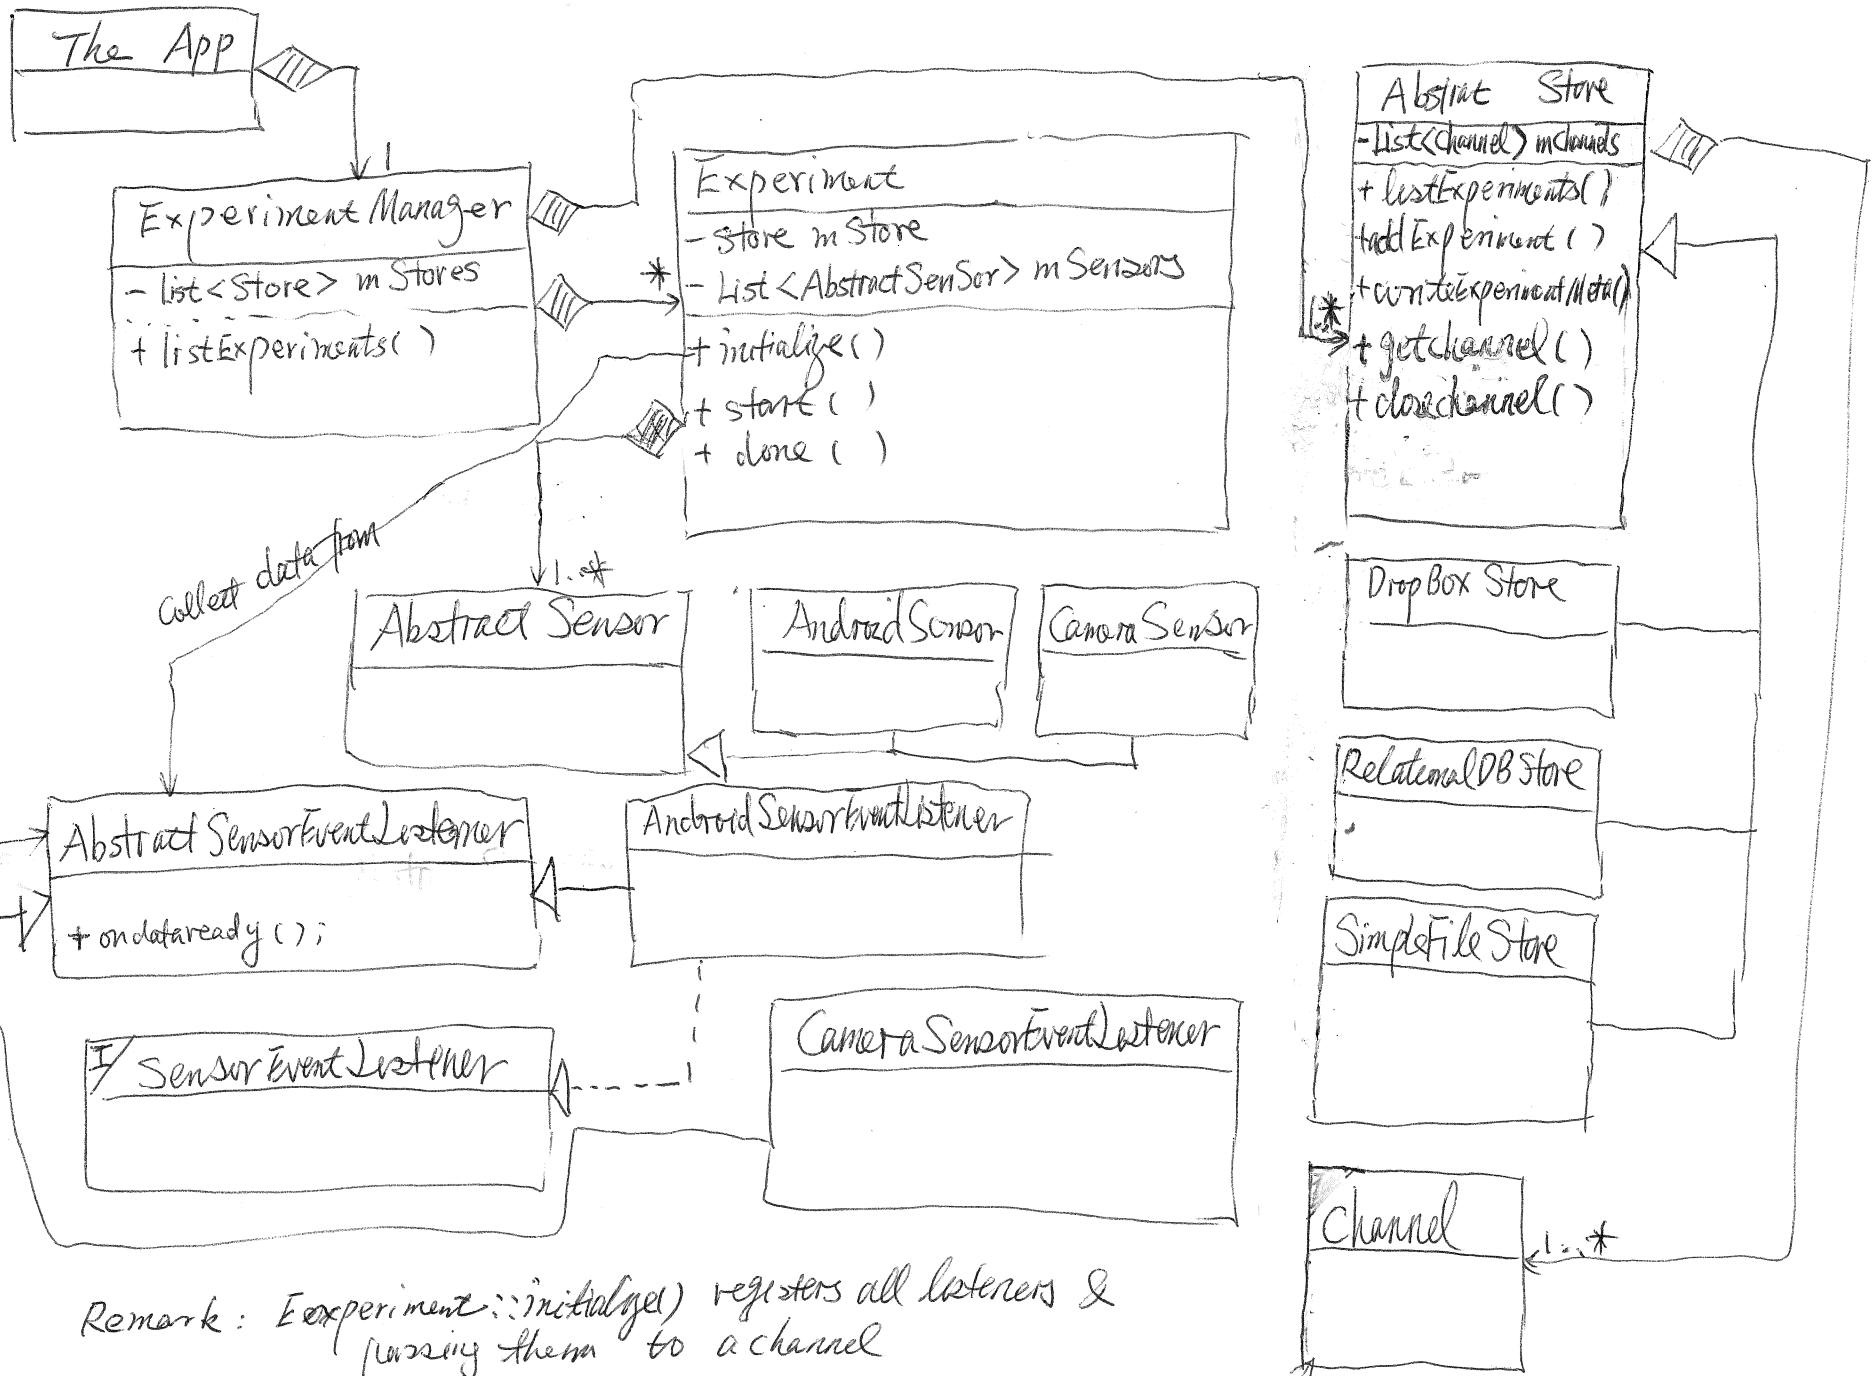 The App
1
ExperimentManager
- List<Store> mStores
+ listExperiments()
*
Experiment
- Store mStore
- List<AbstractSenSor> mSensors
+ initialize()
+ start ( )
+ done ( )
1..*
Abstrat Store
- List<Channel> mChannels
+ listExperiments()
+addExperiment()
+writeExperimentMeta()
+ getchannel()
+ closechannel()
Collect data from
1..*
Abstract Sensor
AndroidSensor
CameraSensor
DropBox Store
RelationalDB Store
SimpleFile Store
AbstractSensorEventListener
+ ondataready();
AndroidSensorEventListener
I
SensorEventListener
CameraSensorEventListener
Channel
1..*
Remark: Experiment::initialize() registers all listeners &
passing them to a channel